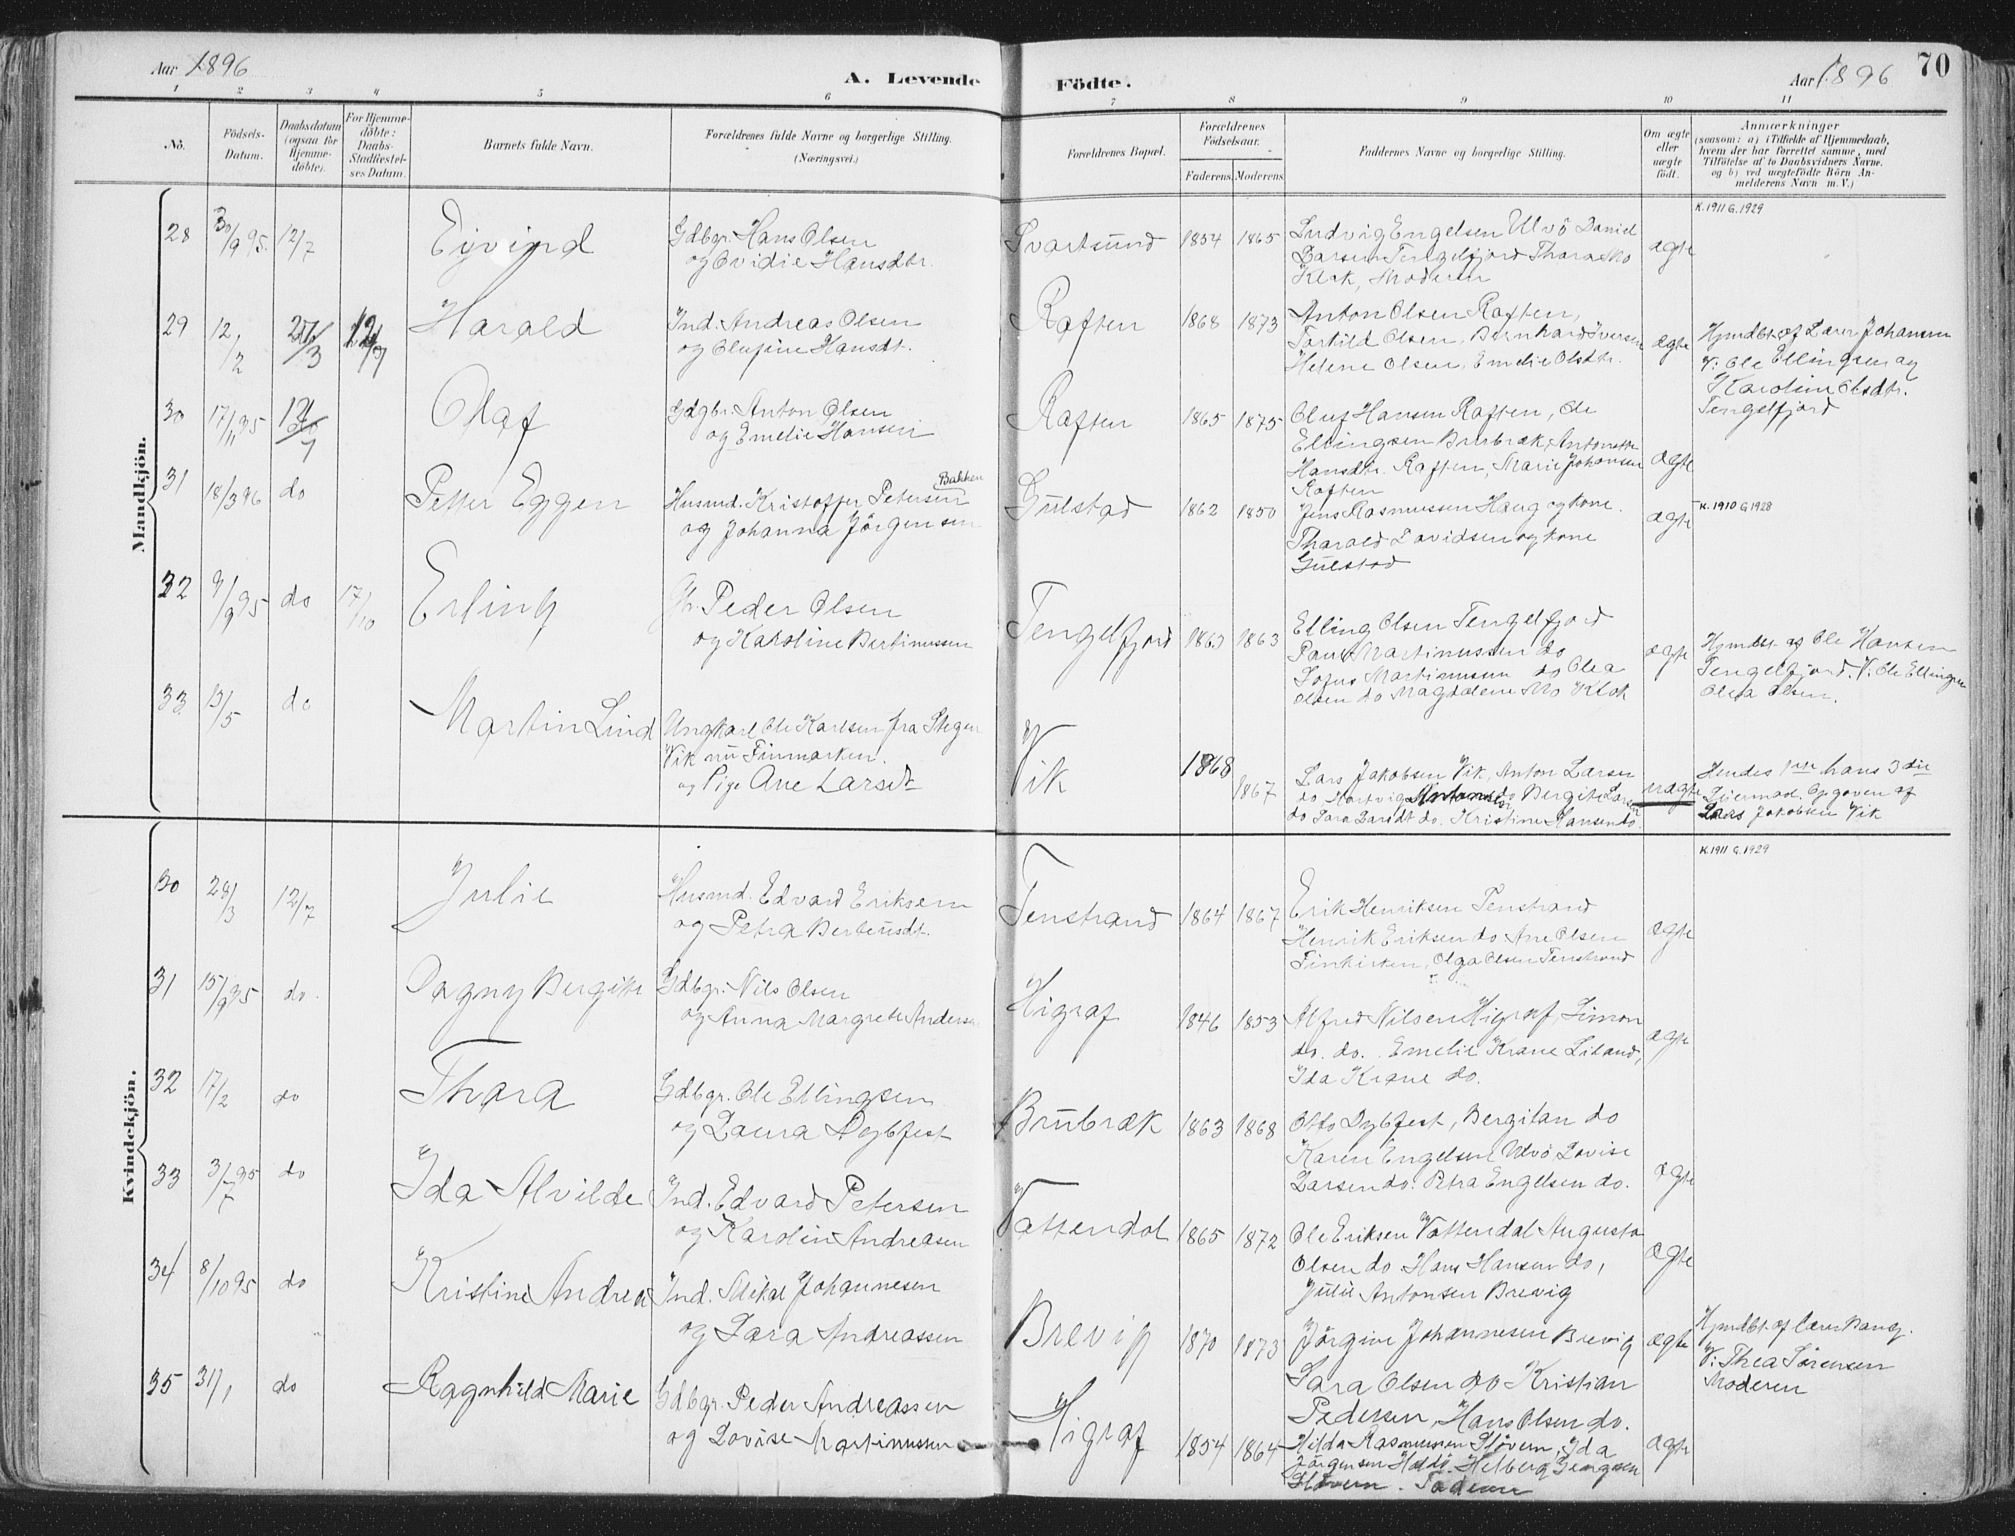 Aar 1896
A. Levende
Födte.
Aar 1896
70
1 2 3 4 5 6 7 8 9 10 11
No.
Födsels-Datum.
Daabsdatum (ogsaa for Hjemmedöbte).
For Hjemmedöbte: Daabs-Stadfæstelses Datum.
Barnets fulde Navn.
Forældrenes fulde Navne og borgerlige Stilling. (Næringsvei.)
Forældrenes Bopæl.
Forældrenes Födselsaar.
Faderens. Moderens.
Faddernes Navne og borgerlige Stilling.
Om ægte eller uægte födt.
Anmærkninger
(saasom: a) i Tilfælde af Hjemmedaab, hvem der har forrettet samme, med Tilföielse af to Daabsvidners Navne. og b) ved uægtefödte Börn Anmelderens Navn m. V.)
Mandkjön.
28 30/9 95 12/7 Eyvind
Gdbgr. Hans Olsen
og Ovidie Hansdtr.
Svartsund 1854 1865
Ludvig Engelsen Ulvö Daniel
Larsen Tengelfjord Thara Mo
Klok, Moderen
ægte
K. 1911 G. 1929
29 12/2 27/3 12/7 Harald
Ind. Andreas Olsen
og Olufine Hansdt.
Raften 1868 1873
Anton Olsen Raften,
Torkild Olsen, Bernhard Iversen
Helene Olsen, Emelie Olsdtr.
ægte
Hjmdbt. af Lærer Johansen
V: Ole Ellingsen og
Karoline Olsdtr.
Tengelfjord
30 17/11 95 12/7 Olaf
Gdgbr. Anton Olsen
og Emelie Hansen
Raften 1865 1875
Oluf Hansen Raften, Ole
Ellingsen Brubræk, Antonette
Hansdtr. Raften, Marie Johansen
Raften
ægte
31 18/3 96 do Petter Eggen
Husmd. Kristoffer Petersen Bakken
og Johanna Jörgensen
Gulstad 1862 1850
Jens Rasmussen Haug og kone.
Tharald Davidsen og kone
Gulstad
ægte
K. 1910 G 1928
32 9/9 95 do 17/10 Erling
Gbr. Peder Olsen
og Karoline Bertinussen
Tengelfjord 1863 1863
Elling Olsen Tengelfjord
Paul Martinussen do
Sofus Martinussen do Olea
Olsen do Magdalene Mo Klok
ægte
Hjmdbt. af Ole Hansen
Tengelfjord. V. Ole Ellingsen
Olea Olsen.
33 13/5 do Martin Lind
Ungkarl Ole Karlsen fra Stegen
Vik nu Finmarken.
og Pige Ane Larsdt
Vik 1868 1867
Lars Jakobsen Vik, Anton Larsen
do Hartvig Antonsen do Bergite Larsen
do Sara Larsdt do. Kristine Hansen do.
uægte
Hendes 1ste hans 3die
Leiermaal. Opgaven af
Lars Jakobsen Vik
Kvindekjön.
30 28/3 12/7 Julie
Husmd. Edvard Eriksen
og Petra Berteusdt.
Tenstrand 1864 1867
Erik Henriksen Tenstrand
Henrik Eriksen do Ane Olsen
Finkirken, Olga Olsen Tenstrand
ægte
K. 1911 G. 1929
31 15/9 95 do. Dagny Bergitte
Gdbgr. Nils Olsen
og Anna Margrete Anders
Higraf 1846 1853
Alfred Nilsen Higraf, Simon
do. do. Emelie Krane Liland,
Ida Krane do.
ægte
32 17/2 do Thora
Gdbgr. Ole Ellingsen
og Laura Dybfest
Brubræk 1863 1868
Otto Dybfest, Bergitan do
Karen Engelsen Ulvö Lovise
Larsen do. Petra Engelsen do.
ægte
33 3/7 95 do Ida Alvilde
Ind. Edvard Petersen
og Karolin Andreasen
Vattendal 1865 1872
Ole Eriksen Vattendal Augusta
Olsen do Hans Hansen do,
Julie Antonsen Brevig
ægte
34 8/10 95 do Kristine Andrea
Ind. Mikal Johannesen
og Lara Andreassen
Brevig 1870 1873
Jörgine Johannesen Brevig
Sara Olsen do Kristian
Pedersen, Hans Olsen do.
ægte
Hjmdbt. af Lærer Bang.
V: Thea Sörensen
Moderen
35 31/1 do Ragnhild Marie
Gdbgr. Peder Andreassen
og Lovise Martinussen
Higraf 1854 1864
Hilda Rasmussen Slövern, Ida
Jörgensen Helberg Georgsen
Slövern. Faderen
ægte